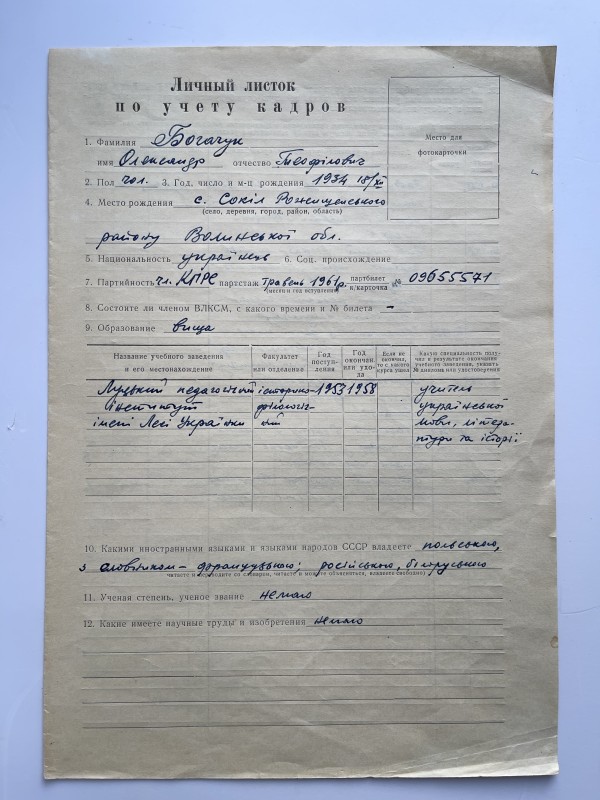 Личный листок
по учету кадров
Место для
фотокарточки
1. Фамилия Богачук
имя Олександр отчество Теофілович
2. Пол чол. 3. Год, число и м-ц рождения 1934 18/XII
4. Место рождения с. Сокіл Рожищенського
(село, деревня, город, район, область)
району Волинської обл.
5. Национальность українець 6. Соц. происхождение
7. Партийность чл. КПРС партстаж травень 1961 р. партбилет к.карточка № 09655571
(месяц и год вступления)
8. Состоите ли членом ВЛКСМ, с какого времени и № билета –
9. Образование вища
Название учебного заведения и его местонахождение
Факультет или отделение
Год поступления
Год окончан. или ухода
Если не окончил, то с какого курса ушел
Какую специальность получил в результате окончания учебного заведения, указать № диплома или удостоверения
Луцький педагогічний історико- 1953 1958 учитель
інститут філологіч- української
імені Лесі Українки ний мови, літера-
тури та історії
10. Какими иностранными языками и языками народов СССР владеете польською,
з словником – французькою; російською, білоруською
(читаете и переводите со словарем, читаете и можете объясняться, владеете свободно)
11. Ученая степень, ученое звание немаю
12. Какие имеете научные труды и изобретения немаю